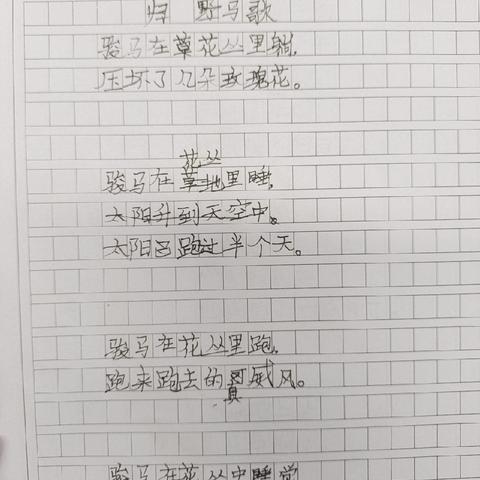 归 野马歌
骏马在草花丛里躺,
压坏了几朵玫瑰花。
花丛
骏马在草地里睡,
太阳升到天空中。
太阳已跑过半个天。
骏马在花丛里跑,
跑来跑去的可威风。
真
骏马在花丛中睡觉